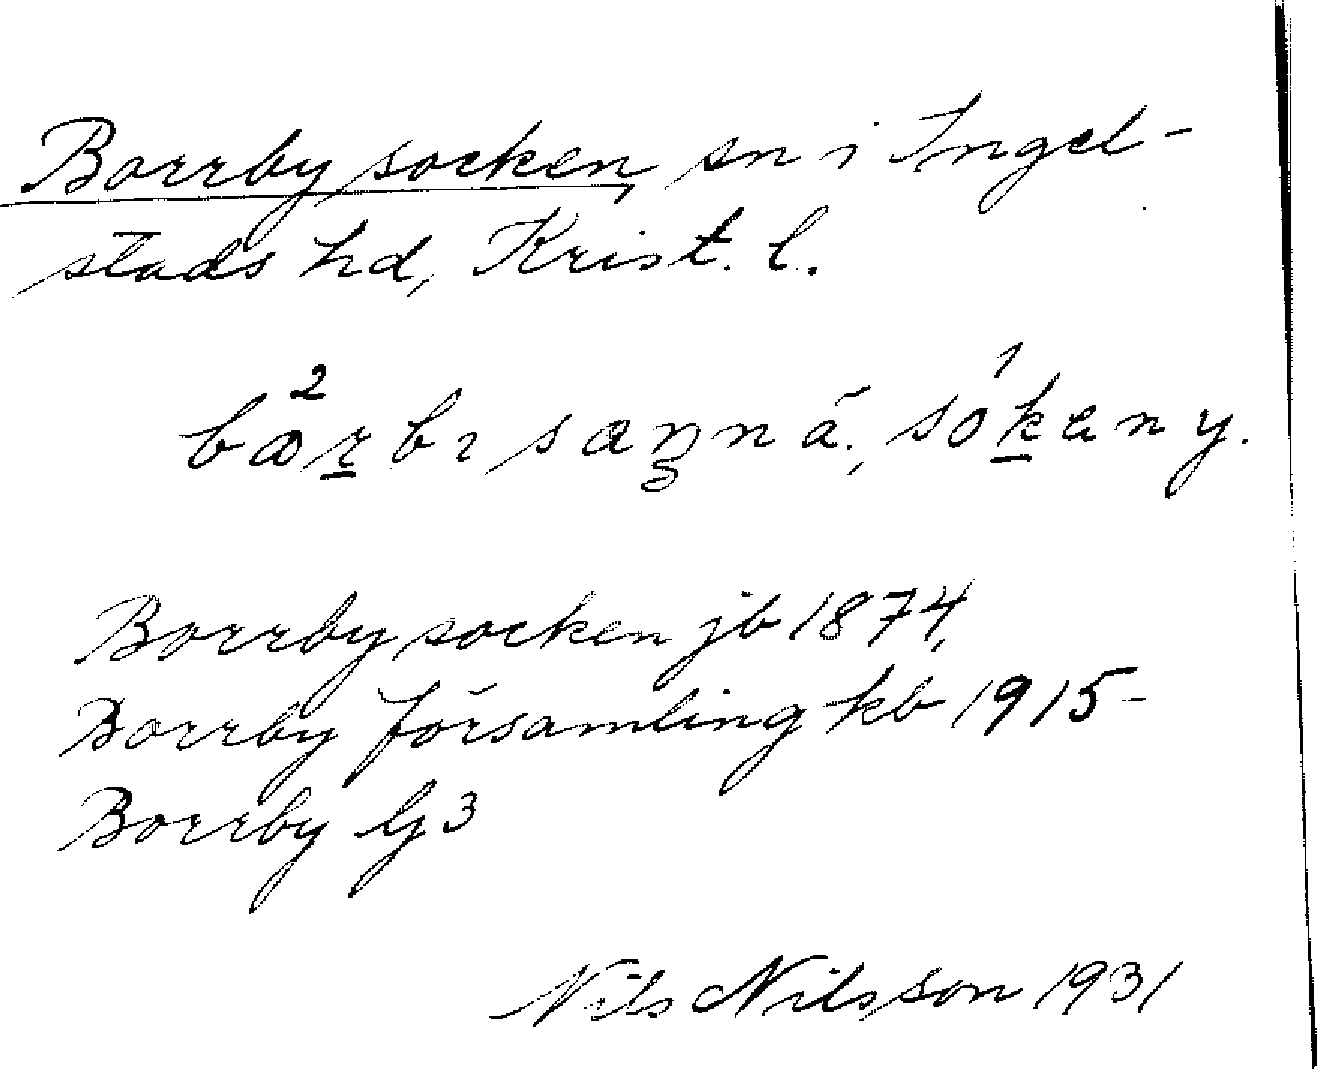 Borrby socken, sn i Ingel-
stads hd, Krist. l.
soken y.
Borrby socken jb 1874,
Borrby församling kb 1915-
Borrby G3
Nils Nilsson 1931